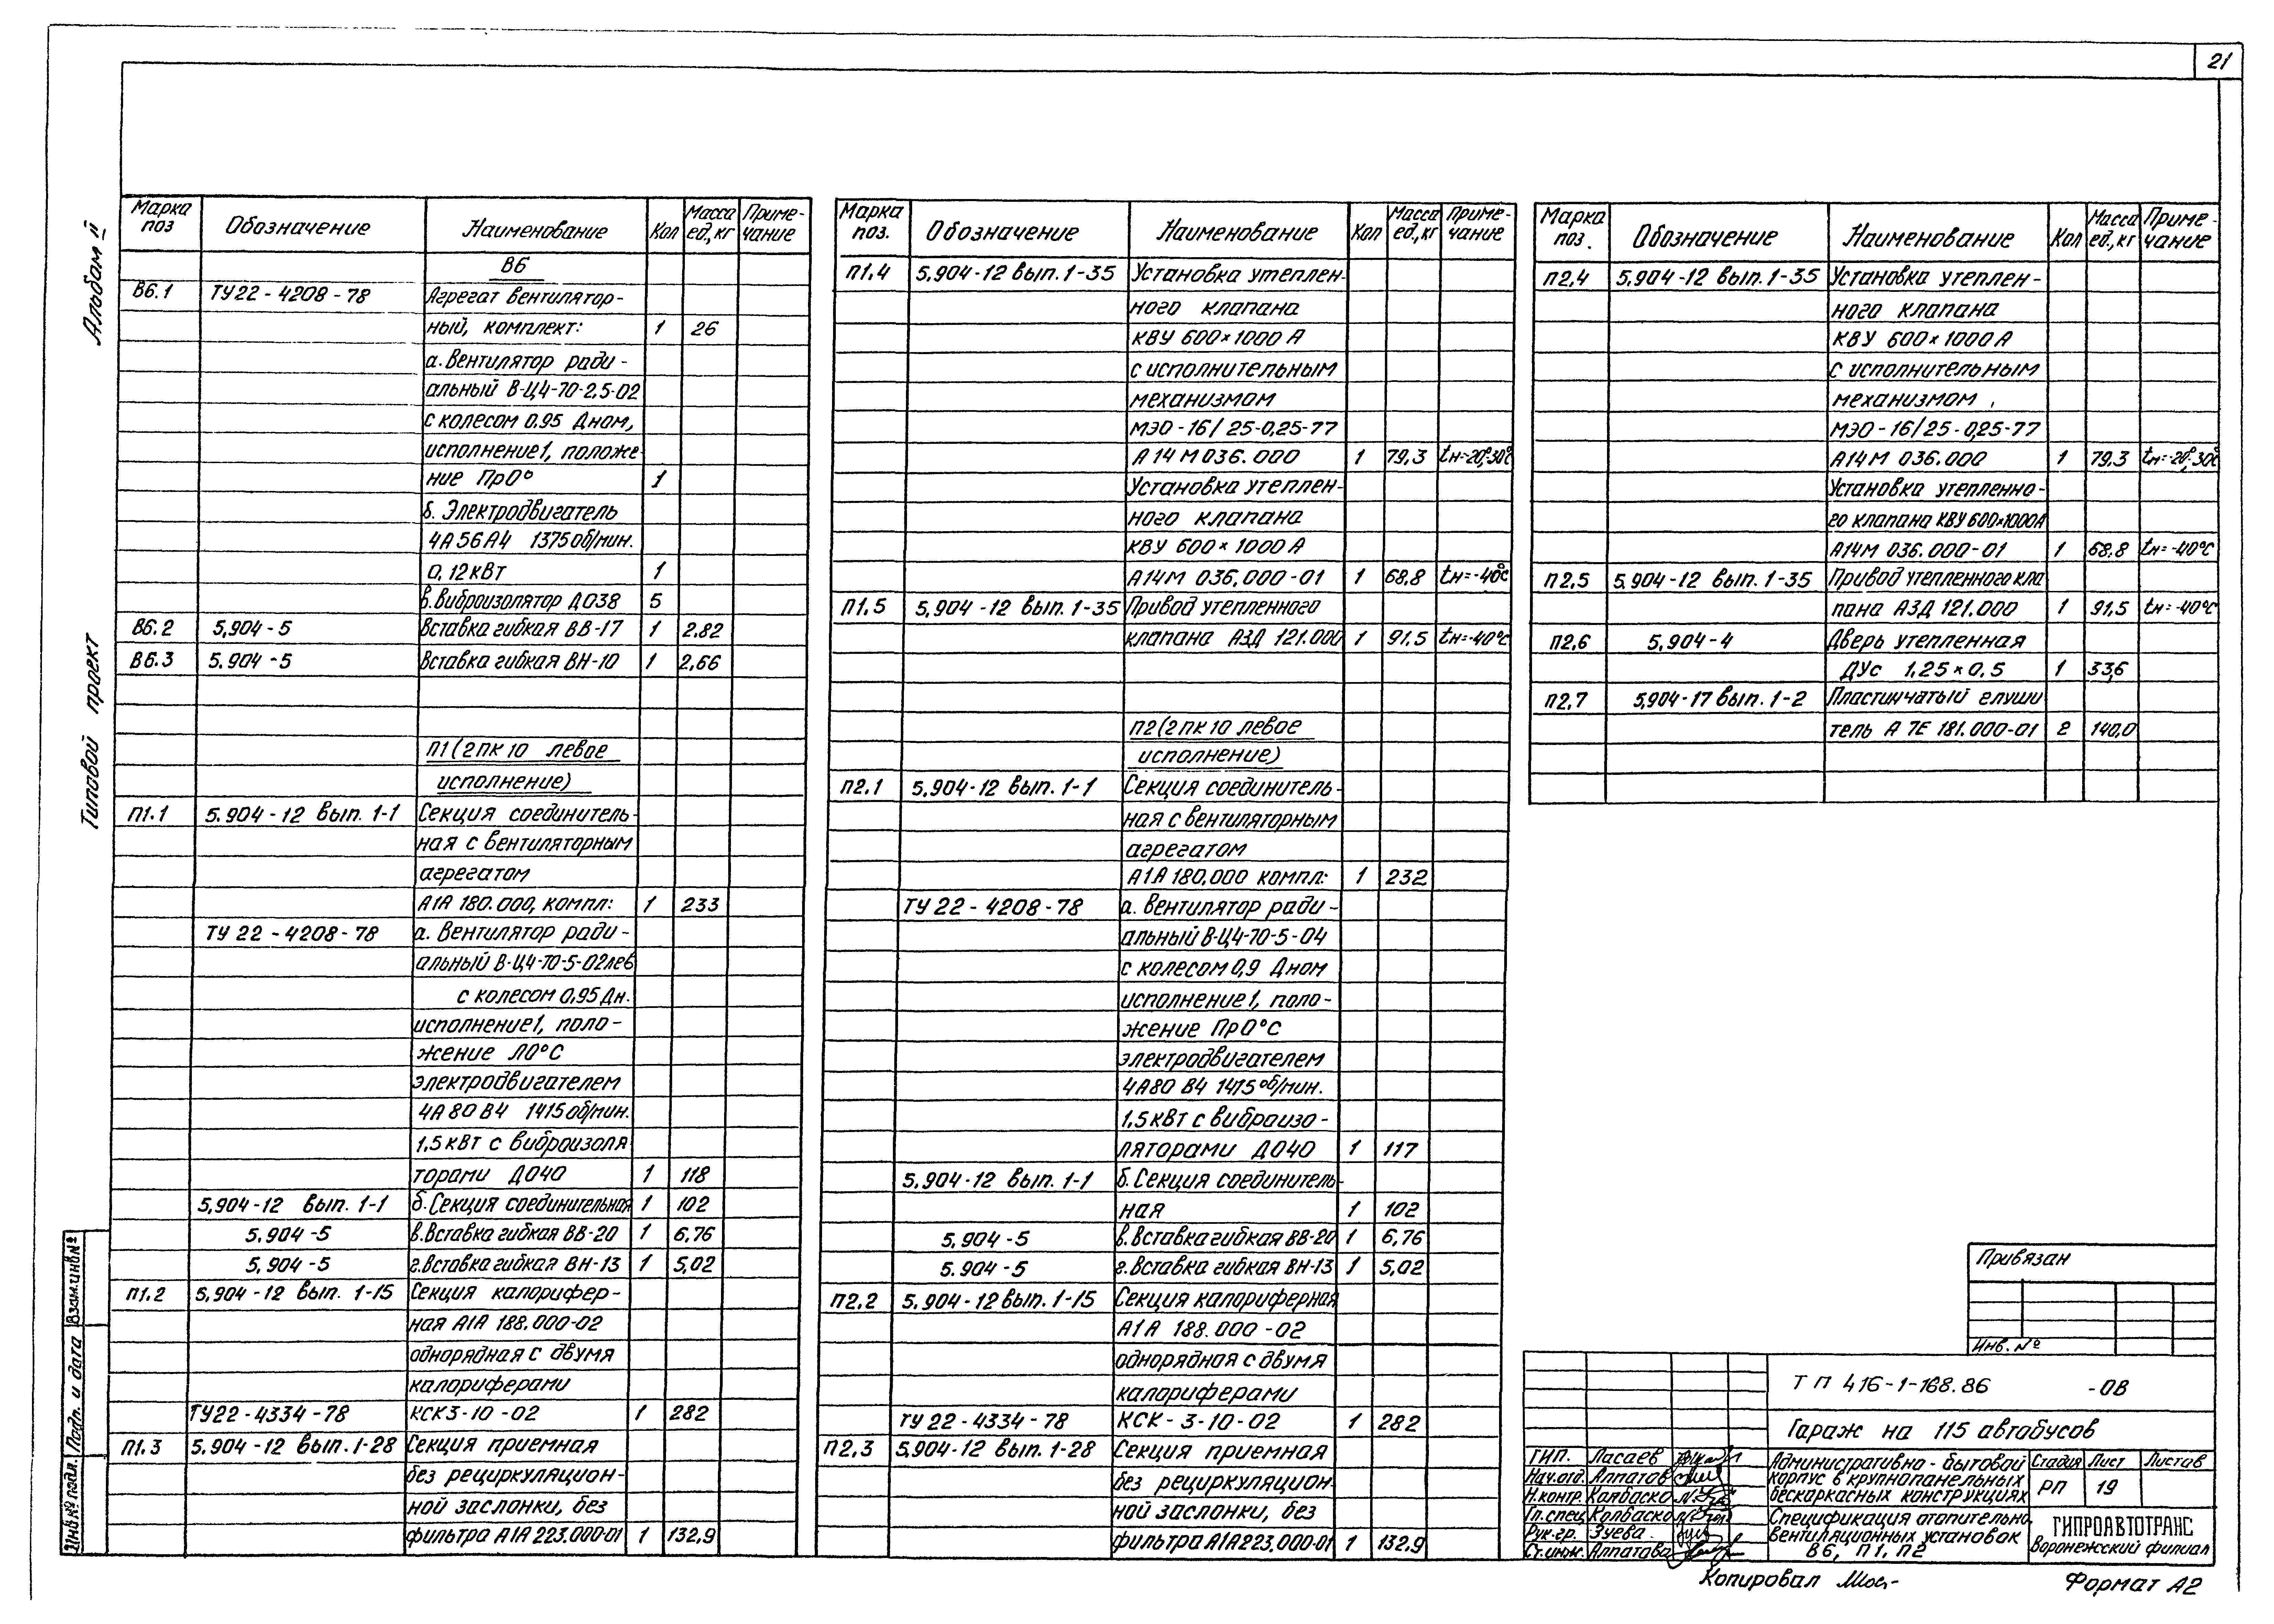 21
Альбом II
Типовой проект
Марка поз Обозначение Наименование Кол Масса ед., кг Приме-чание
В6
В6.1 ТУ22-4208-78 Агрегат вентилятор-
ный, комплект: 1 26
а. Вентилятор ради-
альный В-Ц4-70-2,5-02
с колесом 0.95 Дном,
исполнение 1, положе-
ние Пр0° 1
б. Электродвигатель
4А56А4 1375 об/мин.
0,12 кВт 1
в. Виброизолятор ДО38 5
В6.2 5.904-5 Вставка гибкая ВВ-17 1 2.82
В6.3 5.904-5 Вставка гибкая ВН-10 1 2,66
П1 (2ПК10 левое
исполнение)
П1.1 5.904-12 вып. 1-1 Секция соединитель-
ная с вентиляторным
агрегатом
А1А 180.000, компл: 1 233
ТУ 22-4208-78 а. Вентилятор ради-
альный В-Ц4-70-5-02лев
с колесом 0,95 Дн.
исполнение 1, поло-
жение Л0°С
электродвигателем
4А80 В4 1415 об/мин.
1,5 кВт с виброизоля
торами ДО40 1 118
5.904-12 вып. 1-1 б. Секция соединительная 1 102
5.904-5 в. Вставка гибкая ВВ-20 1 6,76
5.904-5 г. Вставка гибкая ВН-13 1 5,02
П1.2 5.904-12 вып. 1-15 Секция калорифер-
ная А1А 188.000-02
однорядная с двумя
калориферами
ТУ22-4334-78 КСК3-10-02 1 282
П1.3 5.904-12 вып. 1-28 Секция приемная
без рециркуляцион-
ной заслонки, без
фильтра А1А 223.000-01 1 132,9
Марка поз. Обозначение Наименование Кол Масса ед., кг Приме-чание
П1.4 5.904-12 вып. 1-35 Установка утеплен-
ного клапана
КВУ 600×1000 А
с исполнительным
механизмом
МЭО-16/25-0,25-77
А14М036.000 1 79,3 tн=-20°,-30°С
Установка утеплен-
ного клапана
КВУ 600×1000 А
А14М 036.000-01 1 68,8 tн=-40°С
П1.5 5.904-12 вып. 1-35 Привод утепленного
клапана АЗД 121.000 1 91.5 tн=-40°С
П2 (2ПК10 левое
исполнение)
П2.1 5.904-12 вып. 1-1 Секция соединитель-
ная с вентиляторным
агрегатом
А1А 180.000 компл: 1 232
ТУ 22-4208-78 а. Вентилятор ради-
альный В-Ц4-70-5-04
с колесом 0,9 Дном
исполнение 1, поло-
жение Пр0°С
электродвигателем
4А80 В4 1415 об/мин.
1,5 кВт с виброизо-
ляторами ДО40 1 117
5.904-12 вып. 1-1 б. Секция соединитель-
ная 1 102
5.904-5 в. Вставка гибкая ВВ-20 1 6,76
5.904-5 г. Вставка гибкая ВН-13 1 5,02
П2.2 5.904-12 вып. 1-15 Секция калориферная
А1А 188.000-02
однорядная с двумя
калориферами
ТУ 22-4334-78 КСК-3-10-02 1 282
П2.3 5.904-12 вып. 1-28 Секция приемная
без рециркуляцион-
ной заслонки, без
фильтра А1А223.000-01 1 132.9
Марка поз. Обозначение Наименование Кол Масса ед., кг Приме-чание
П2.4 5.904-12 вып. 1-35 Установка утеплен-
ного клапана
КВУ 600×1000 А
с исполнительным
механизмом
МЭО-16/25-0,25-77
А14М 036.000 1 79.3 tн=-20°,-30°С
Установка утепленно-
го клапана КВУ 600×1000А
А14М 036.000-01 1 68,8 tн=-40°С
П2.5 5.904-12 вып. 1-35 Привод утепленного кла
пана АЗД 121.000 1 91,5 tн=-40°С
П2.6 5.904-4 Дверь утепленная
ДУс 1.25×0.5 1 33,6
П2.7 5.904-17 вып. 1-2 Пластинчатый глуши
тель А 7Е 181.000-01 2 140,0
Привязан
Инв. №
ТП 416-1-168.86 -ОВ
Гараж на 115 автобусов
ГИП. Ласаев
Нач.отд. Алпатов
Н.контр. Колбаско
Гл.спец Колбаско
Рук.гр. Зуева.
Ст.инж. Алпатова
Административно-бытовой
корпус в крупнопанельных
бескаркасных конструкциях
Стадия Лист Листов
РП 19
Спецификация отопительно
вентиляционных установок
В6, П1, П2
ГИПРОАВТОТРАНС
Воронежский филиал
Копировал
Формат А2
Инв№ подл. Подп. и дата Взам.инв№